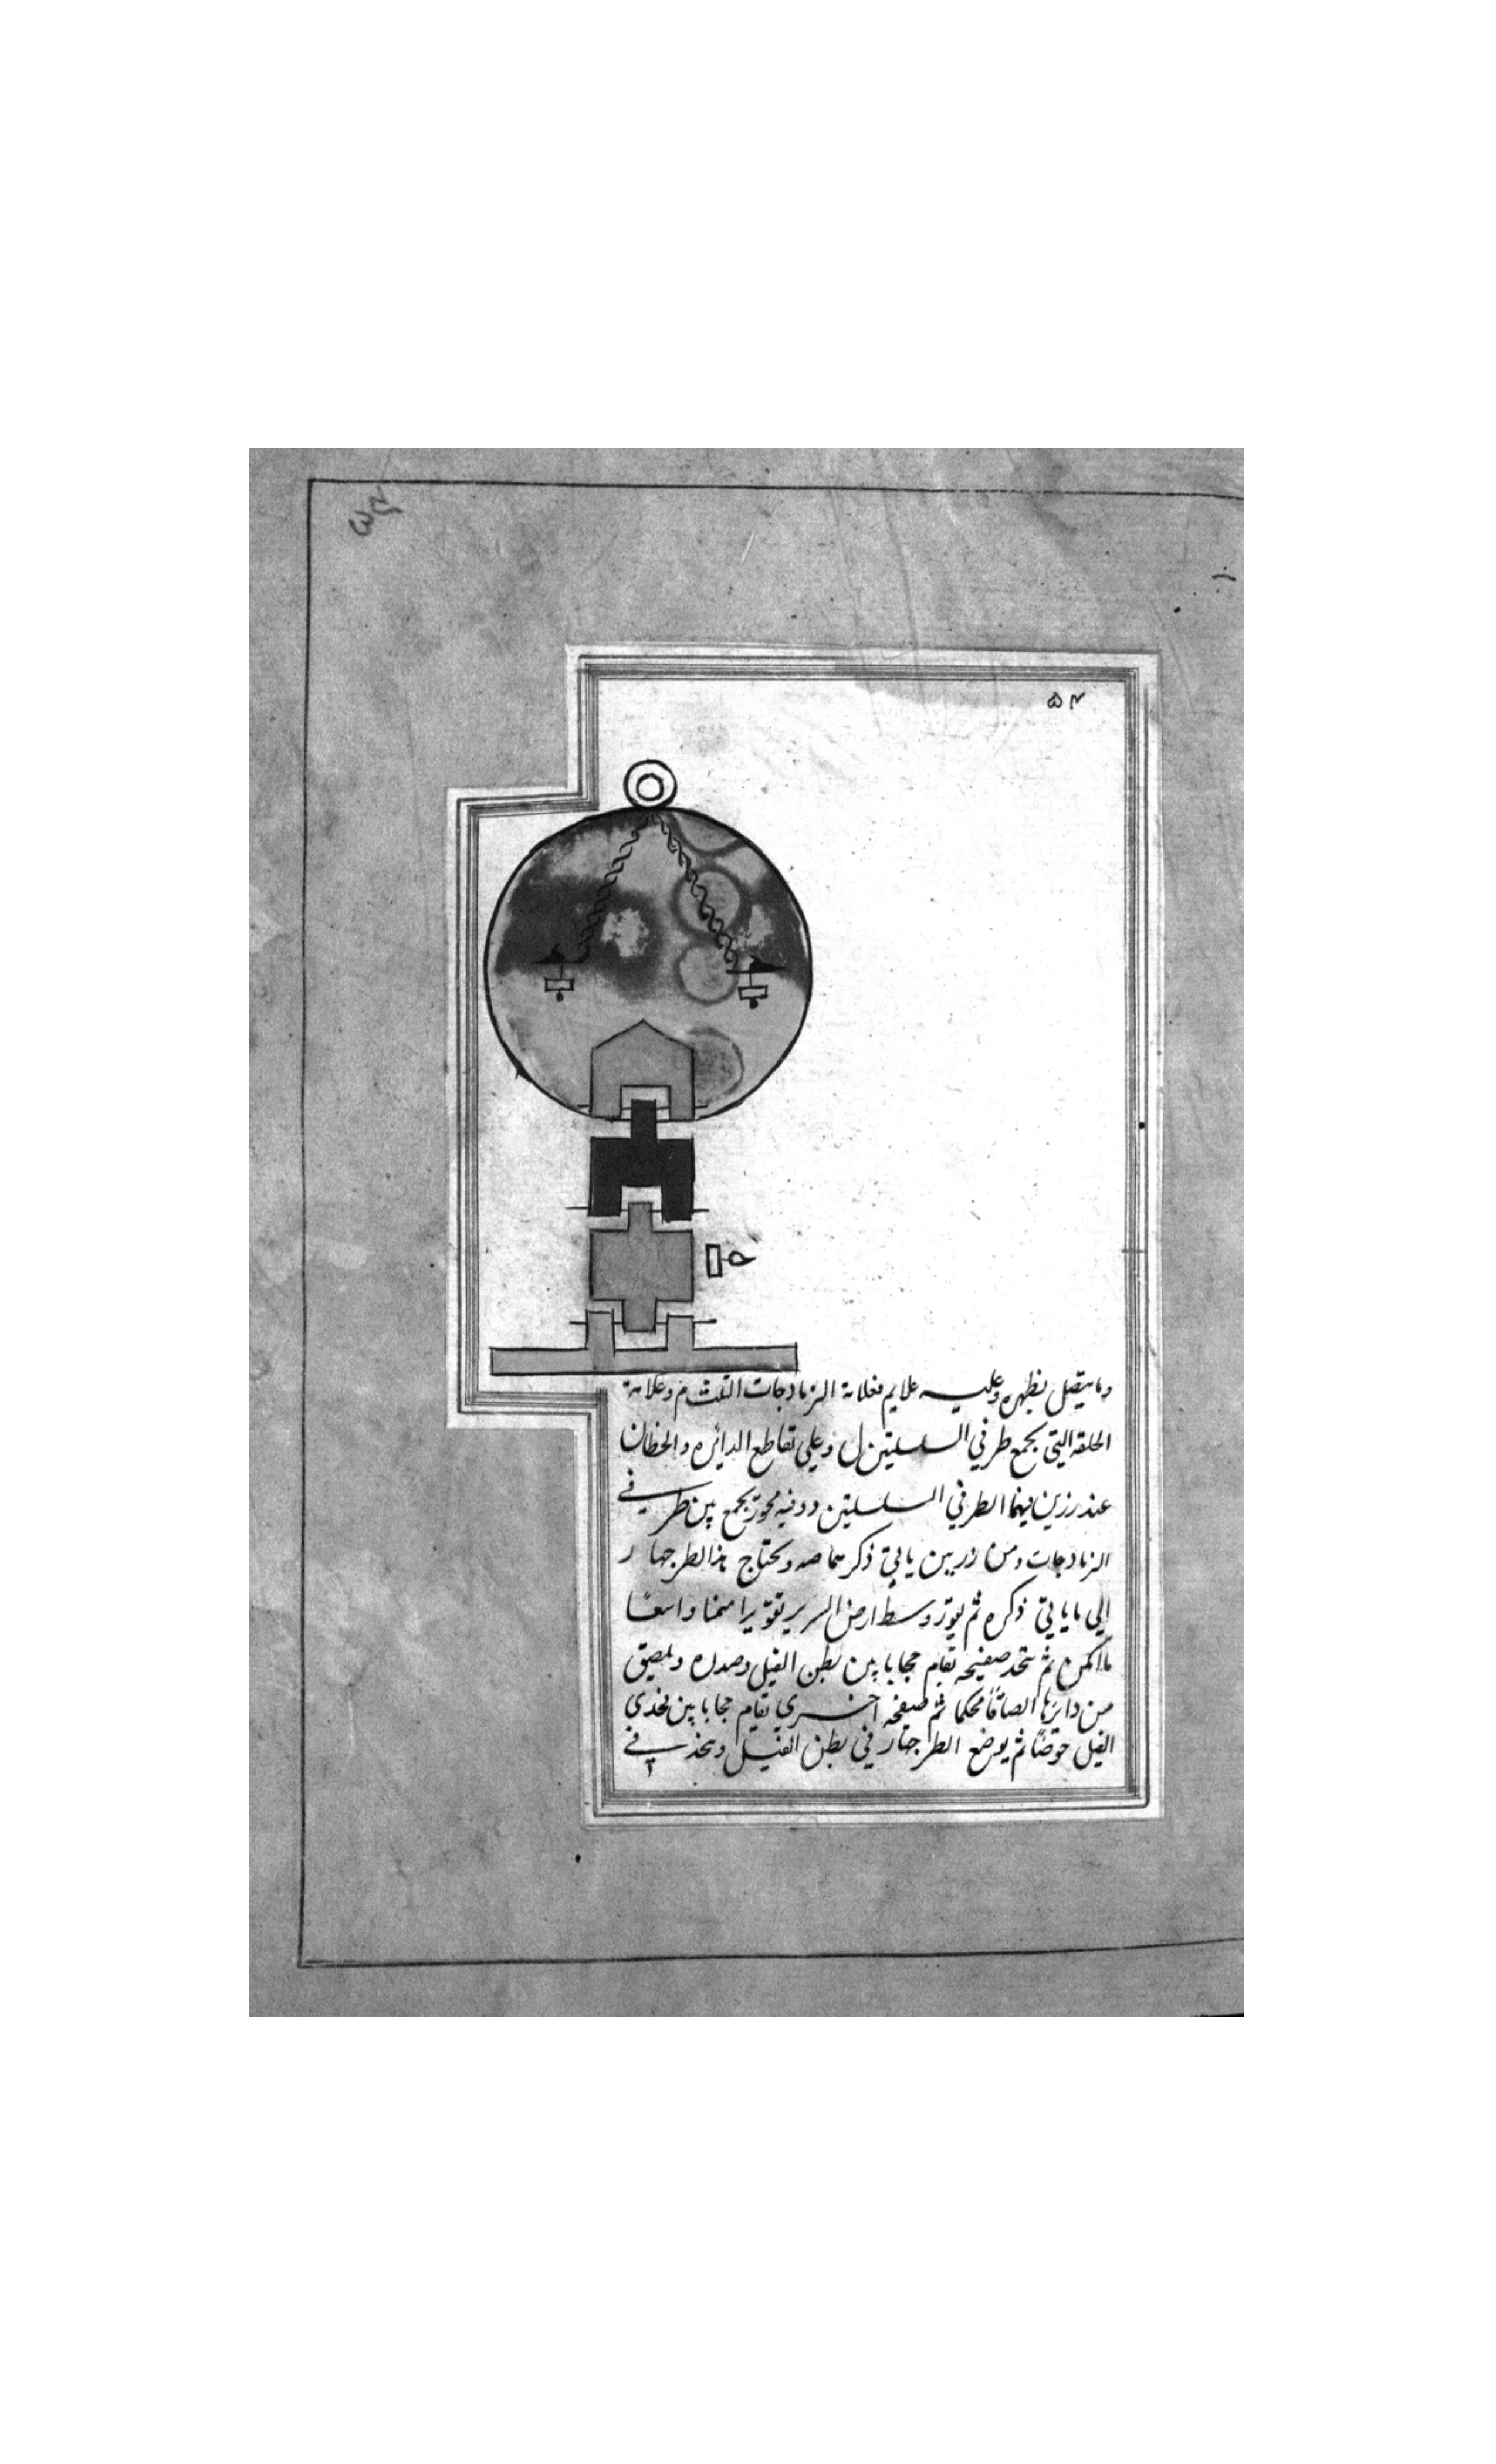 ۵۴
وما يتصل بظهره وعليه علايم فعلامة الزمادجات الثلث م وعلامة
الحلقه التي يجمع طرفي السلسلتين ل وعلي تقاطع الدائره والخطان
عند رزين فيهما الطرفي السلسلتين د وفيه محور يجمع بين طرفي
الزمادجات ومن زربين ياتي ذكرهما صه ويحتاج هذا الطرجهار
الي ما ياتي ذكره ثم يقور وسط ارض السرير تقويرا مثمنا واسعًا
ما امكن ثم يتخد صفيحه تقام حجابا بين بطن الفيل وصدره ويلصق
من دائرها الصاقًا محكما ثم صفيحه اخري تقام حجابا بين فخدي
الفيل حوضًا ثم يوضع الطرجهار في بطن الفيل ويتخذ في